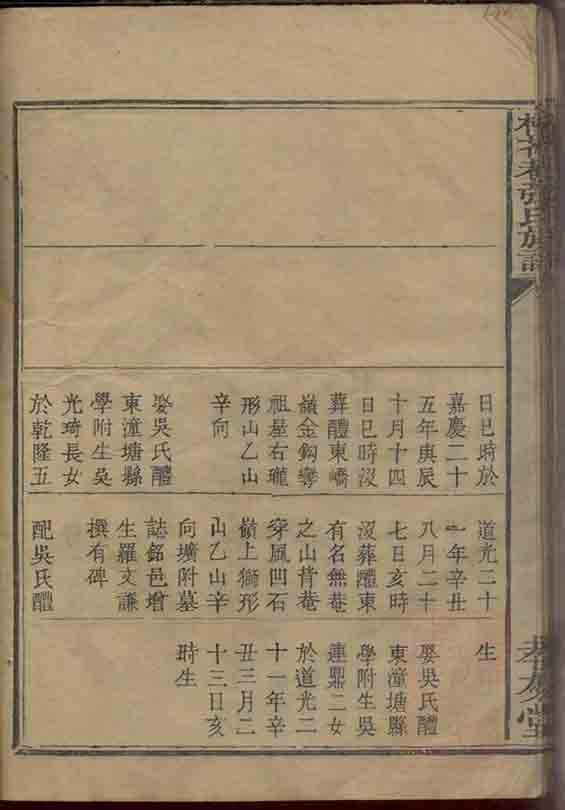 張氏族譜
日巳時於
嘉慶二十
五年庚辰
十月十四
日巳時沒
葬醴東嶠
嶺金鈎彎
祖屋右瓏
形山乙山
辛向
娶吳氏醴
東潼塘縣
學附生吳
光琦長女
於乾隆五
道光二十
一年辛丑
八月二十
七日亥時
沒葬醴東
有名無菴
之山背菴
穿風凹石
嶺上獅形
山乙山辛
向壙附墓
誌銘邑增
生羅文謙
撰有碑
配吳氏醴
生
娶吳氏醴
東潼塘縣
學附生吳
連鼎二女
於道光二
十一年辛
丑三月二
十三日亥
時生
孝友堂